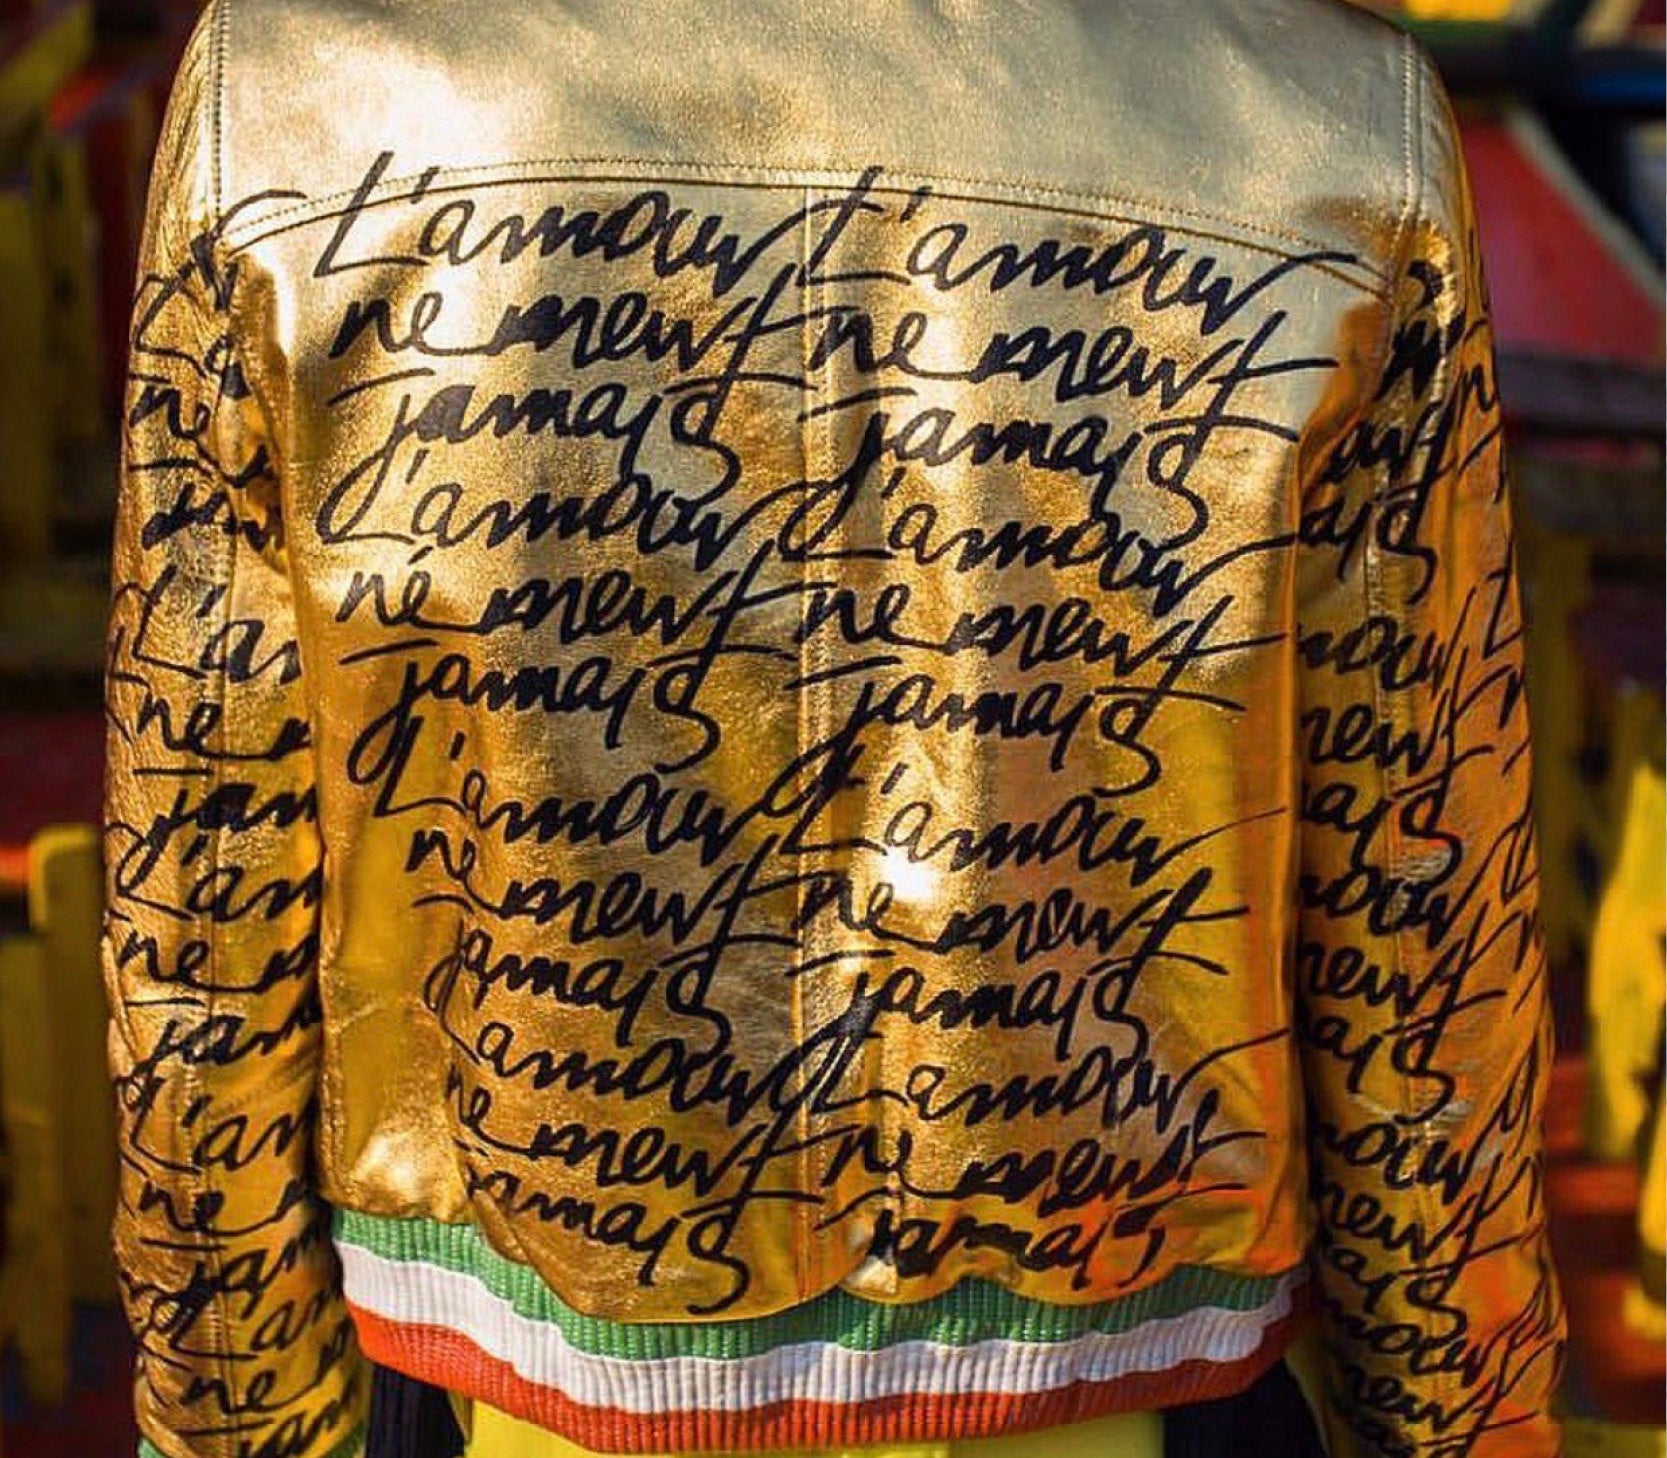 L'amour L'amour
ne meurt ne meurt
jamais jamais
L'amour L'amour
ne meurt ne meurt
jamais jamais
L'amour L'amour
ne meurt ne meurt
jamais jamais
L'amour L'amour
ne meurt ne meurt
jamais jamais